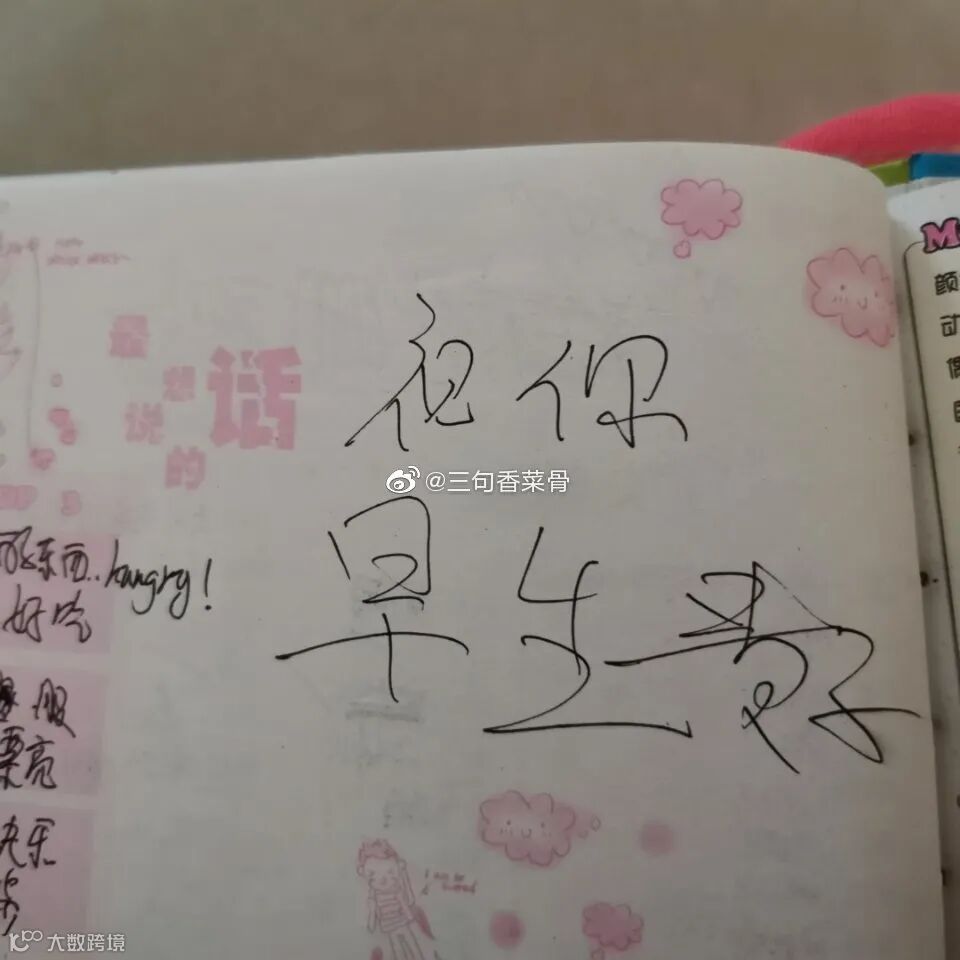 最想说的话
祝你
@三句香菜骨
早生贵子
东西..hungry!
好吃
服
漂亮
快乐
M
颜
动
偶
大数跨境